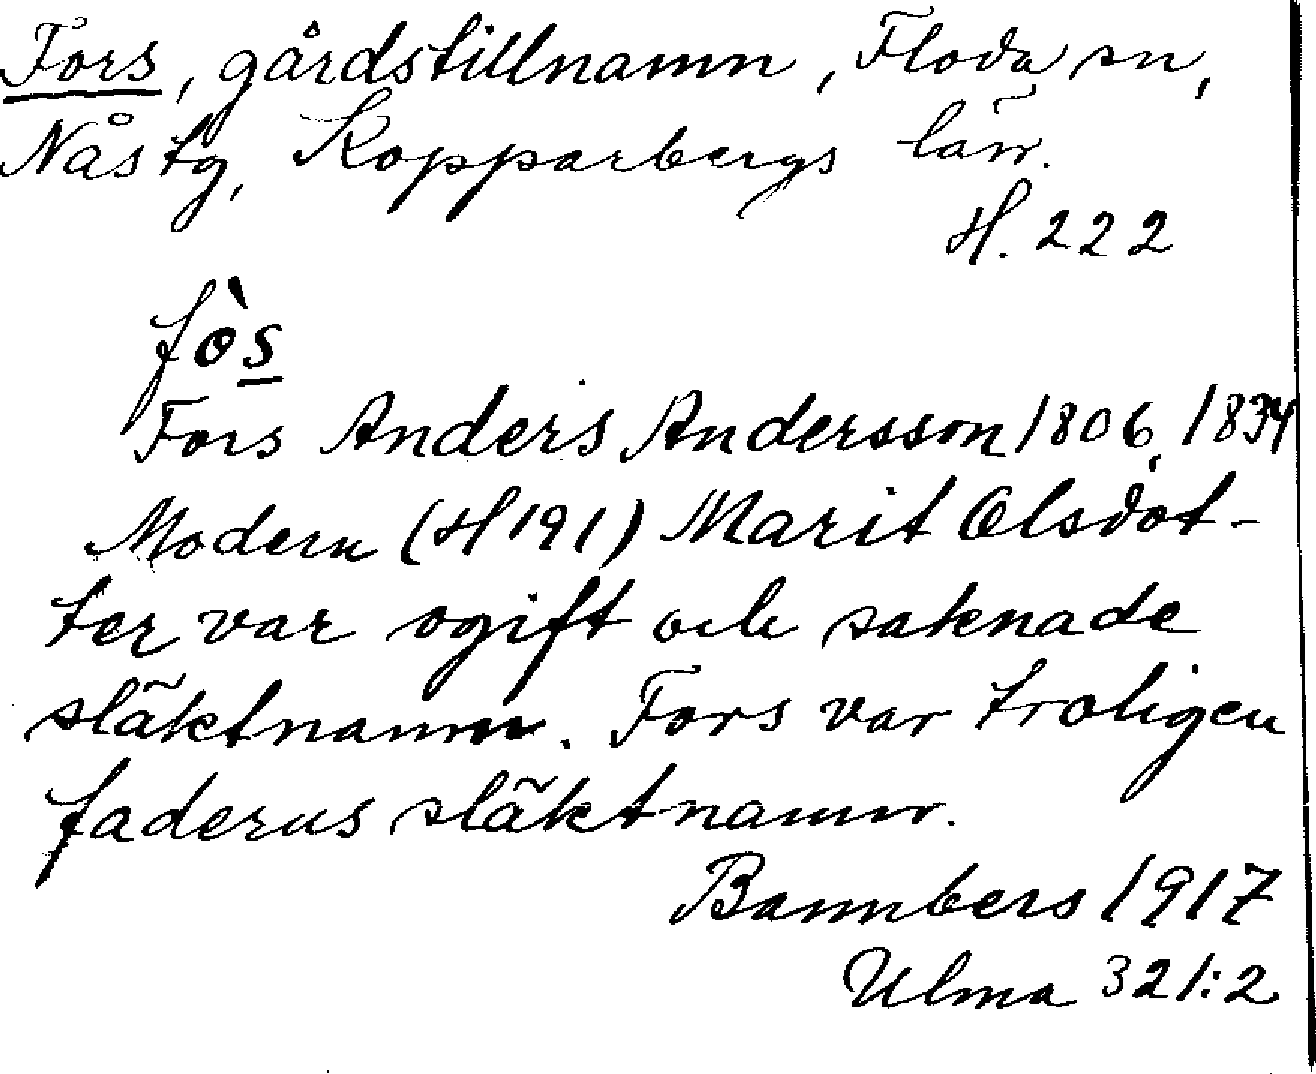 Fors, gårdstillnamn, Floda sn,
Nås tg, Kopparbergs län.
H. 222
fòs
Fors Anders Andersson 1806, 1834
Modern (H 191) Marit Olsdot-
ter var ogift och saknade
släktnamn. Fors var troligen
faderns släktnamn.
Bannbers 1917
Ulma 321:2